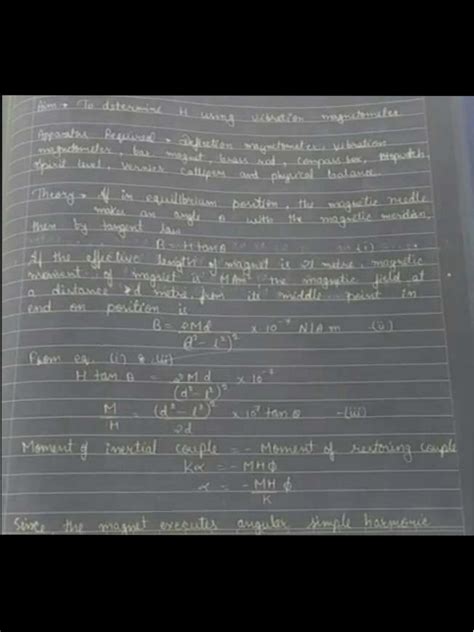 Aim → To determine H using vibration magnetometer
Apparatus Required → deflection magnetometer, vibration
magnetometer, bar magnet, brass rod, compass box,
spirit level, vernier callipers and physical balance.
Theory → If in equilibrium position, the magnetic needle
makes an angle θ with the magnetic
then by tangent law
B = H tanθ —(i)
If the effective length of magnet is 2l metre, magnetic
moment of magnet is M Am² the magnetic field at
a distance d metre from its middle point in
end on position is
B = 2Md / (d² - l²)² × 10⁻⁷ N/A.m —(ii)
From eq. (i) & (ii)
H tan θ = 2Md / (d² - l²)² × 10⁻⁷
M/H = (d² - l²)² / 2d × 10⁷ tanθ —(iii)
Moment of inertial couple = - Moment of restoring couple
Kα = - MHφ
α = - MH/K φ
Since, the magnet executes angular simple harmonic